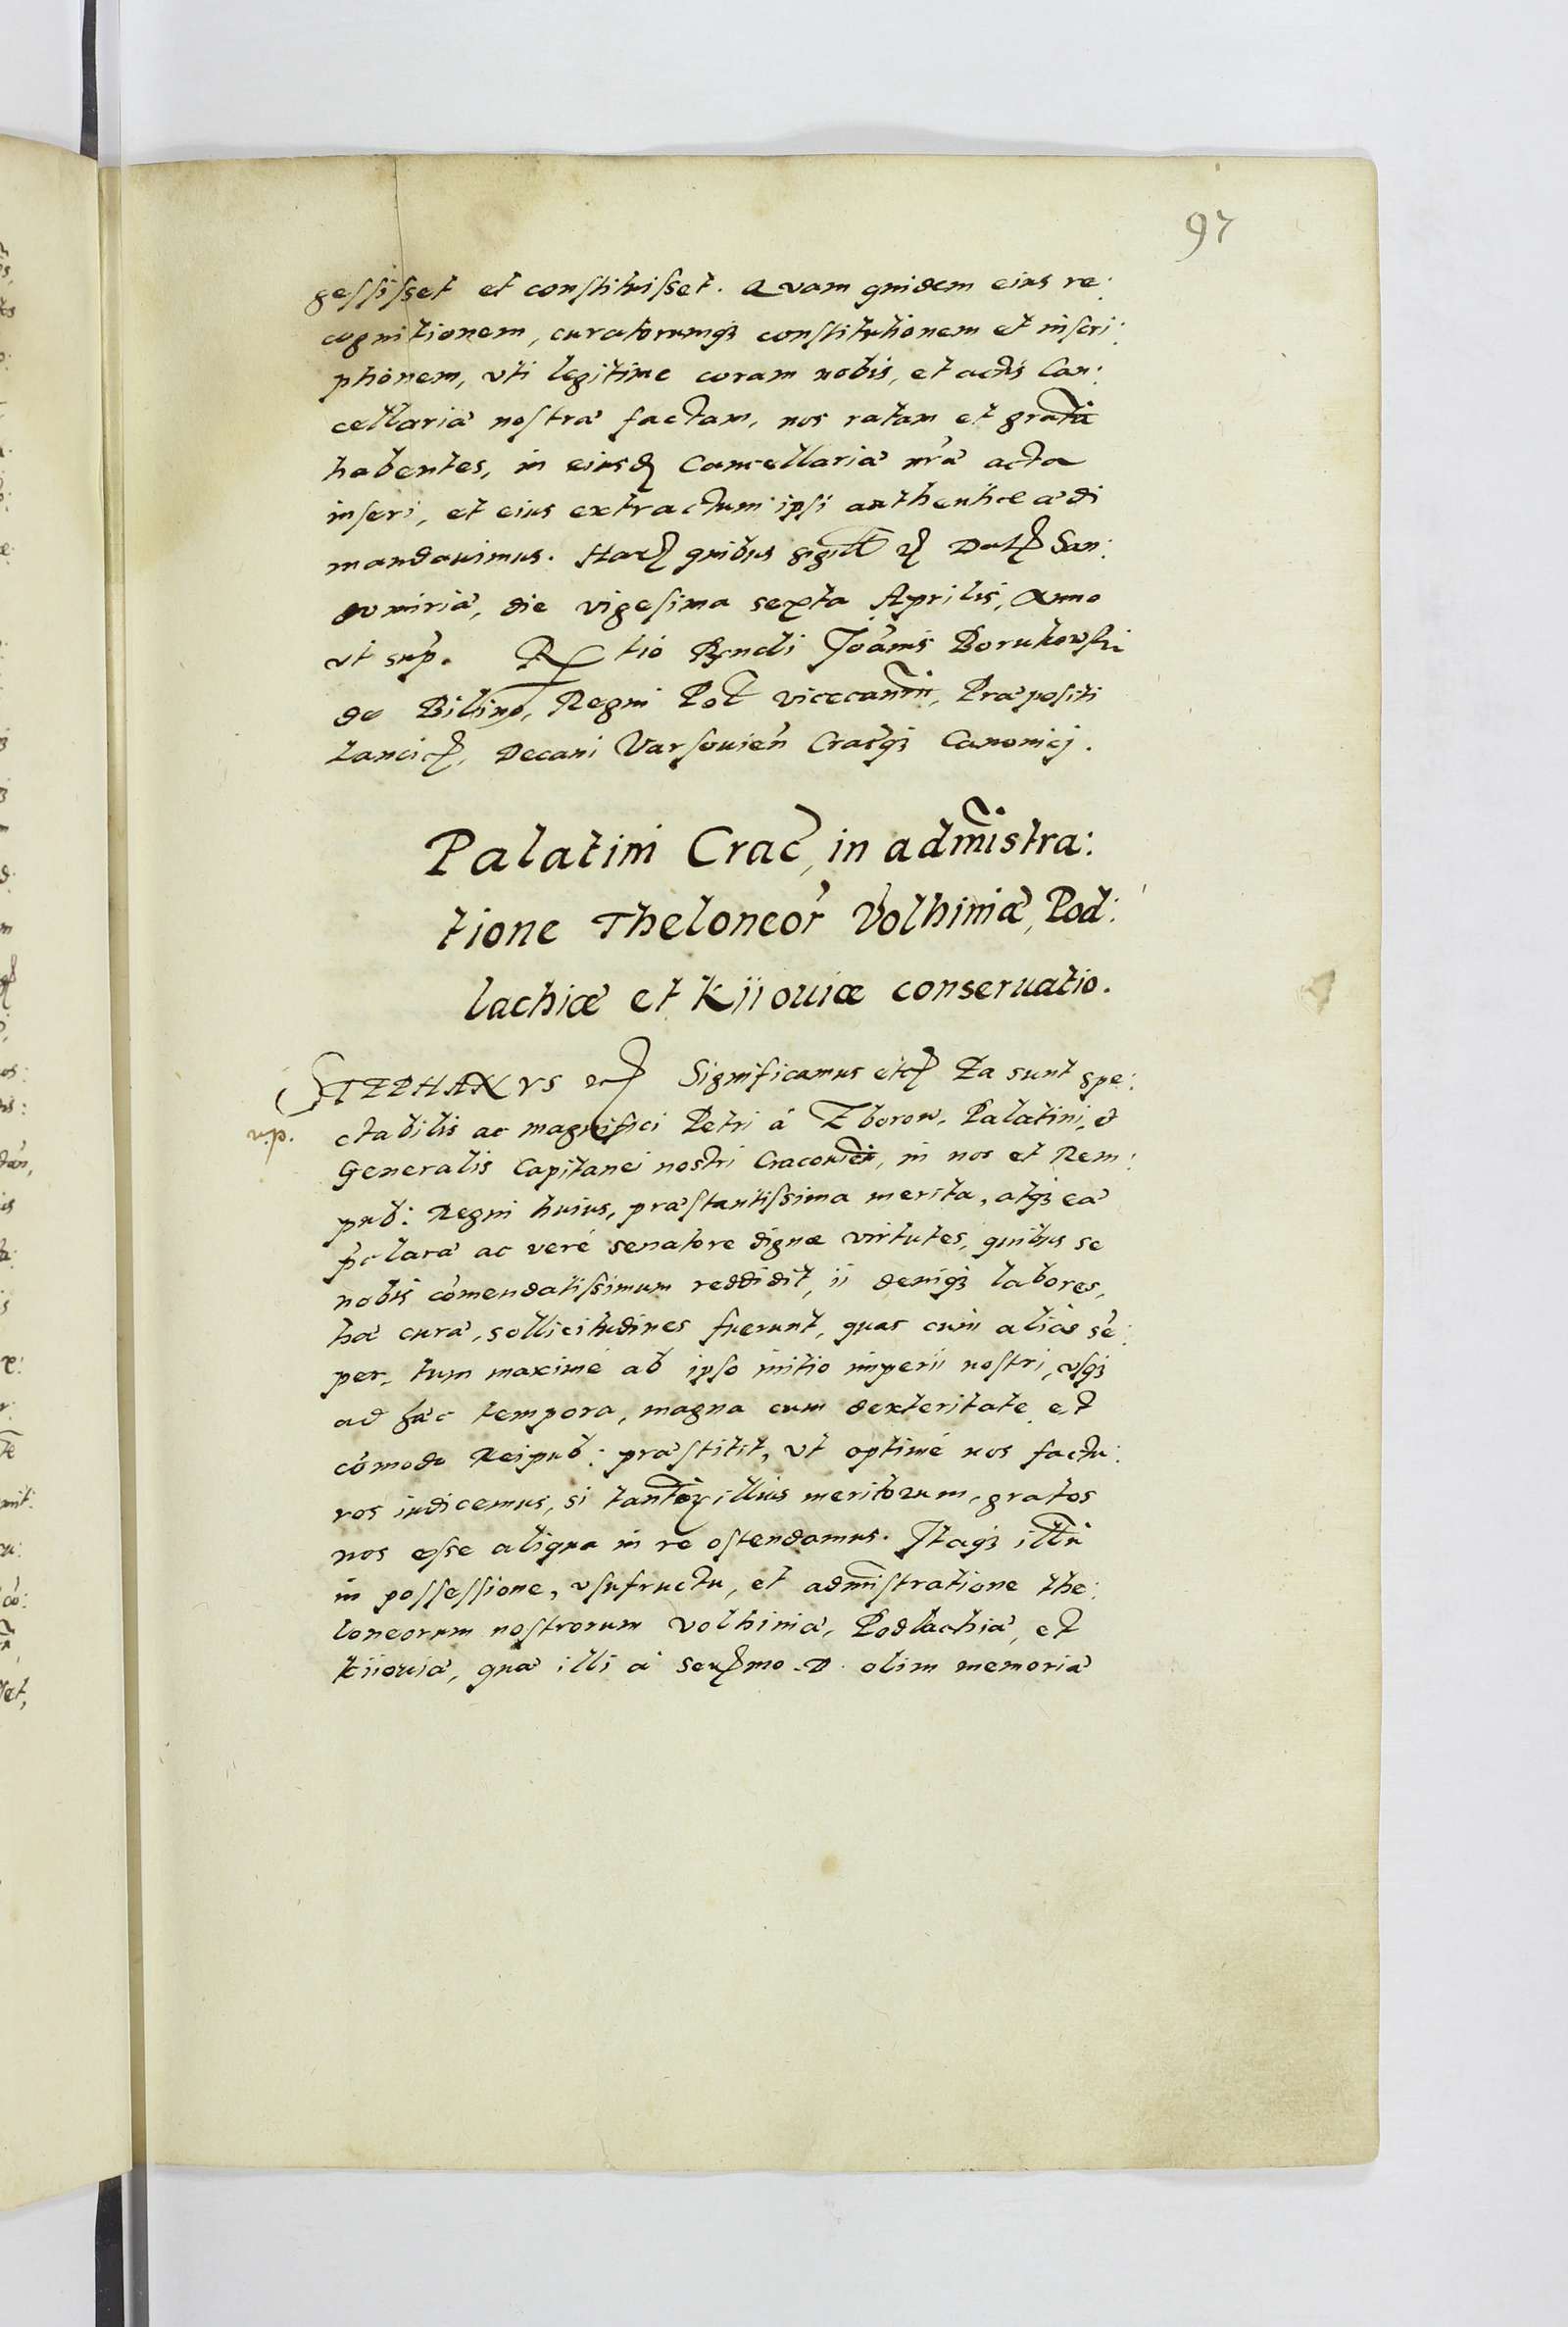 97
gessisset et constituisset. Quam quidem eius re:
cognitionem, curatorumqȝ constitutionem et inscri:
ptionem, vti legitime coram nobis, et actis Can:
cellariæ nostræ factam, nos ratam et gratã
habentes, in eiusdꝫ Cancellariæ nr̃æ acta
inseri, et eius extractum ipsi authentice ædi
mandauimus. Harꝫ quibus sigill̃ ꝛꝫ Datꝫ San:
domiriæ, die vigesima sexta Aprilis, Anno
vt sup̃. Rtio Rn̄di Joãnis Borukowski
de Bilino, Regni Pol̃ vicecan̄rii, Præpositi
Lancicꝫ, Decani Varsouien̄ Cracqȝ Canonicj.
Palatini Crac̃, in adm̃istra:
tione Theloneor̃ Volhiniæ, Pod:
lachiæ et Kiiouiæ conseruatio.
STEPHANVS ꝛcꝫ Significamus etcꝫ Ea sunt spe:
v.p.
ctabilis ac magnifici Petri á Zborow, Palatini, et
Generalis Capitanei nostri Cracouien̄, in nos et Rem:
pub: Regni huius, præstantissima merita, atqȝ eæ
p̃claræ ac veré senatore dignæ virtutes, quibus se
nobis cõmendatissimum reddidit, ii deniqȝ labores,
hæ curæ, sollicitudines fuerunt, quas cum alias sẽ:
per, tum maximé ab ipso initio imperii nostri, vsqȝ
ad hæc tempora, magna cum dexteritate et
cõmodo Reipub: præstitit, vt optimé nos factu:
ros iudicemus, si tantor̃ illius meritorum, gratos
nos esse aliqua in re ostendamus. Itaqȝ illũ
in possessione, vsufructu, et adm̃istratione the:
loneorum nostrorum Volhiniæ, Podlachiæ, et
Kiiouiæ, quæ illi á Serꝫmo D. olim memoriæ